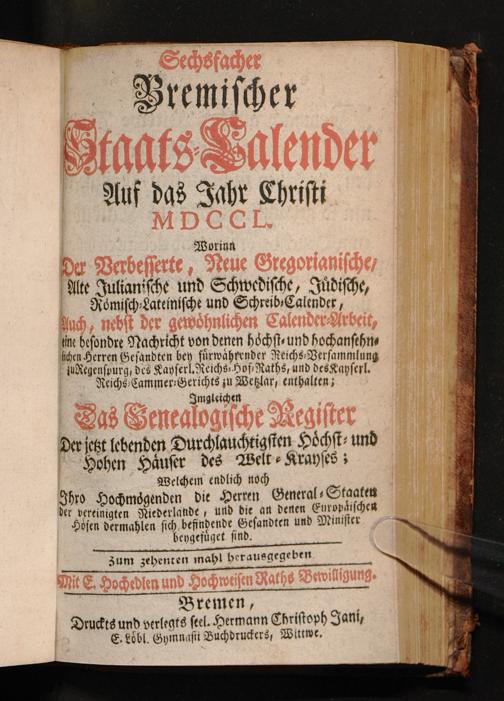 Sechsfacher
Bremischer
Staats-Calender
Auf das Jahr Christi
MDCCL.
Worinn
Der Verbesserte, Neue Gregorianische,
Alte Julianische und Schwedische, Jüdische,
Römisch-Lateinische und Schreib-Calender,
Auch, nebst der gewöhnlichen Calender-Arbeit,
eine besondre Nachricht von denen höchst- und hochansehn-
lichen Herren Gesandten bey fürwährender Reichs-Versammlung
zu Regenspurg, des Kayserl. Reichs-Hof-Raths, und des Kayserl.
Reichs-Cammer-Gerichts zu Wetzlar, enthalten;
Imgleichen
Das Genealogische Register
Der jetzt lebenden Durchlauchtigsten Höchst- und
Hohen Häuser des Welt-Krayses;
Welchem endlich noch
Ihro Hochmögenden die Herren General-Staaten
der vereinigten Niederlande, und die an denen Europäischen
Höfen dermahlen sich befindende Gesandten und Minister
beygefüget sind.
Zum zehenten mahl herausgegeben
Mit E. Hochedlen und Hochweisen Raths Bewilligung.
Bremen,
Druckts und verlegts seel. Hermann Christoph Jani,
E. Löbl. Gymnasii Buchdruckers, Wittwe.